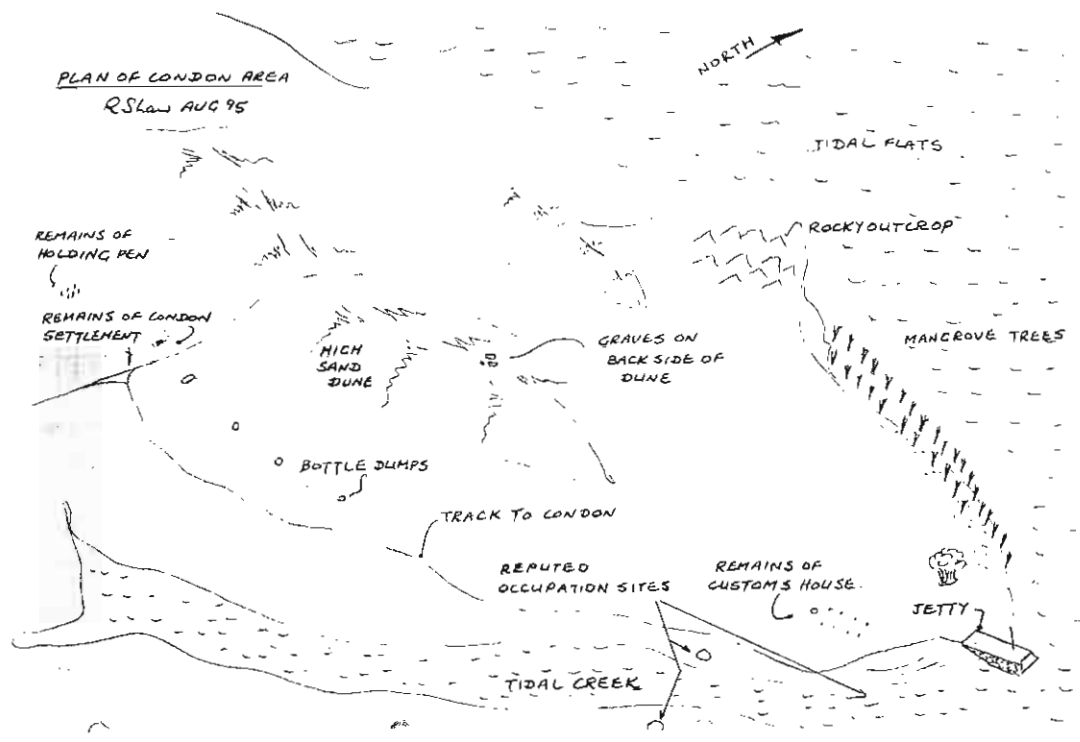 PLAN OF LONDON AREA
R Shaw AUG 95
NORTH
TIDAL FLATS
ROCKY OUTCROP
REMAINS OF
HOLDING PEN
REMAINS OF LONDON
SETTLEMENT
HIGH
SAND
DUNE
GRAVES ON
BACK SIDE OF
DUNE
MANGROVE TREES
BOTTLE DUMPS
TRACK TO LONDON
REPUTED
OCCUPATION SITES
REMAINS OF
CUSTOMS HOUSE.
JETTY
TIDAL CREEK